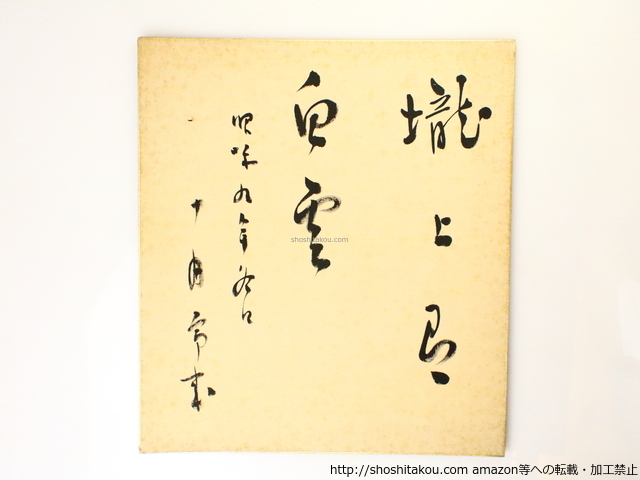 壠上
白雲
昭和九年冬日
十月
shoshitakou.com
http://shoshitakou.com amazon等への転載・加工禁止